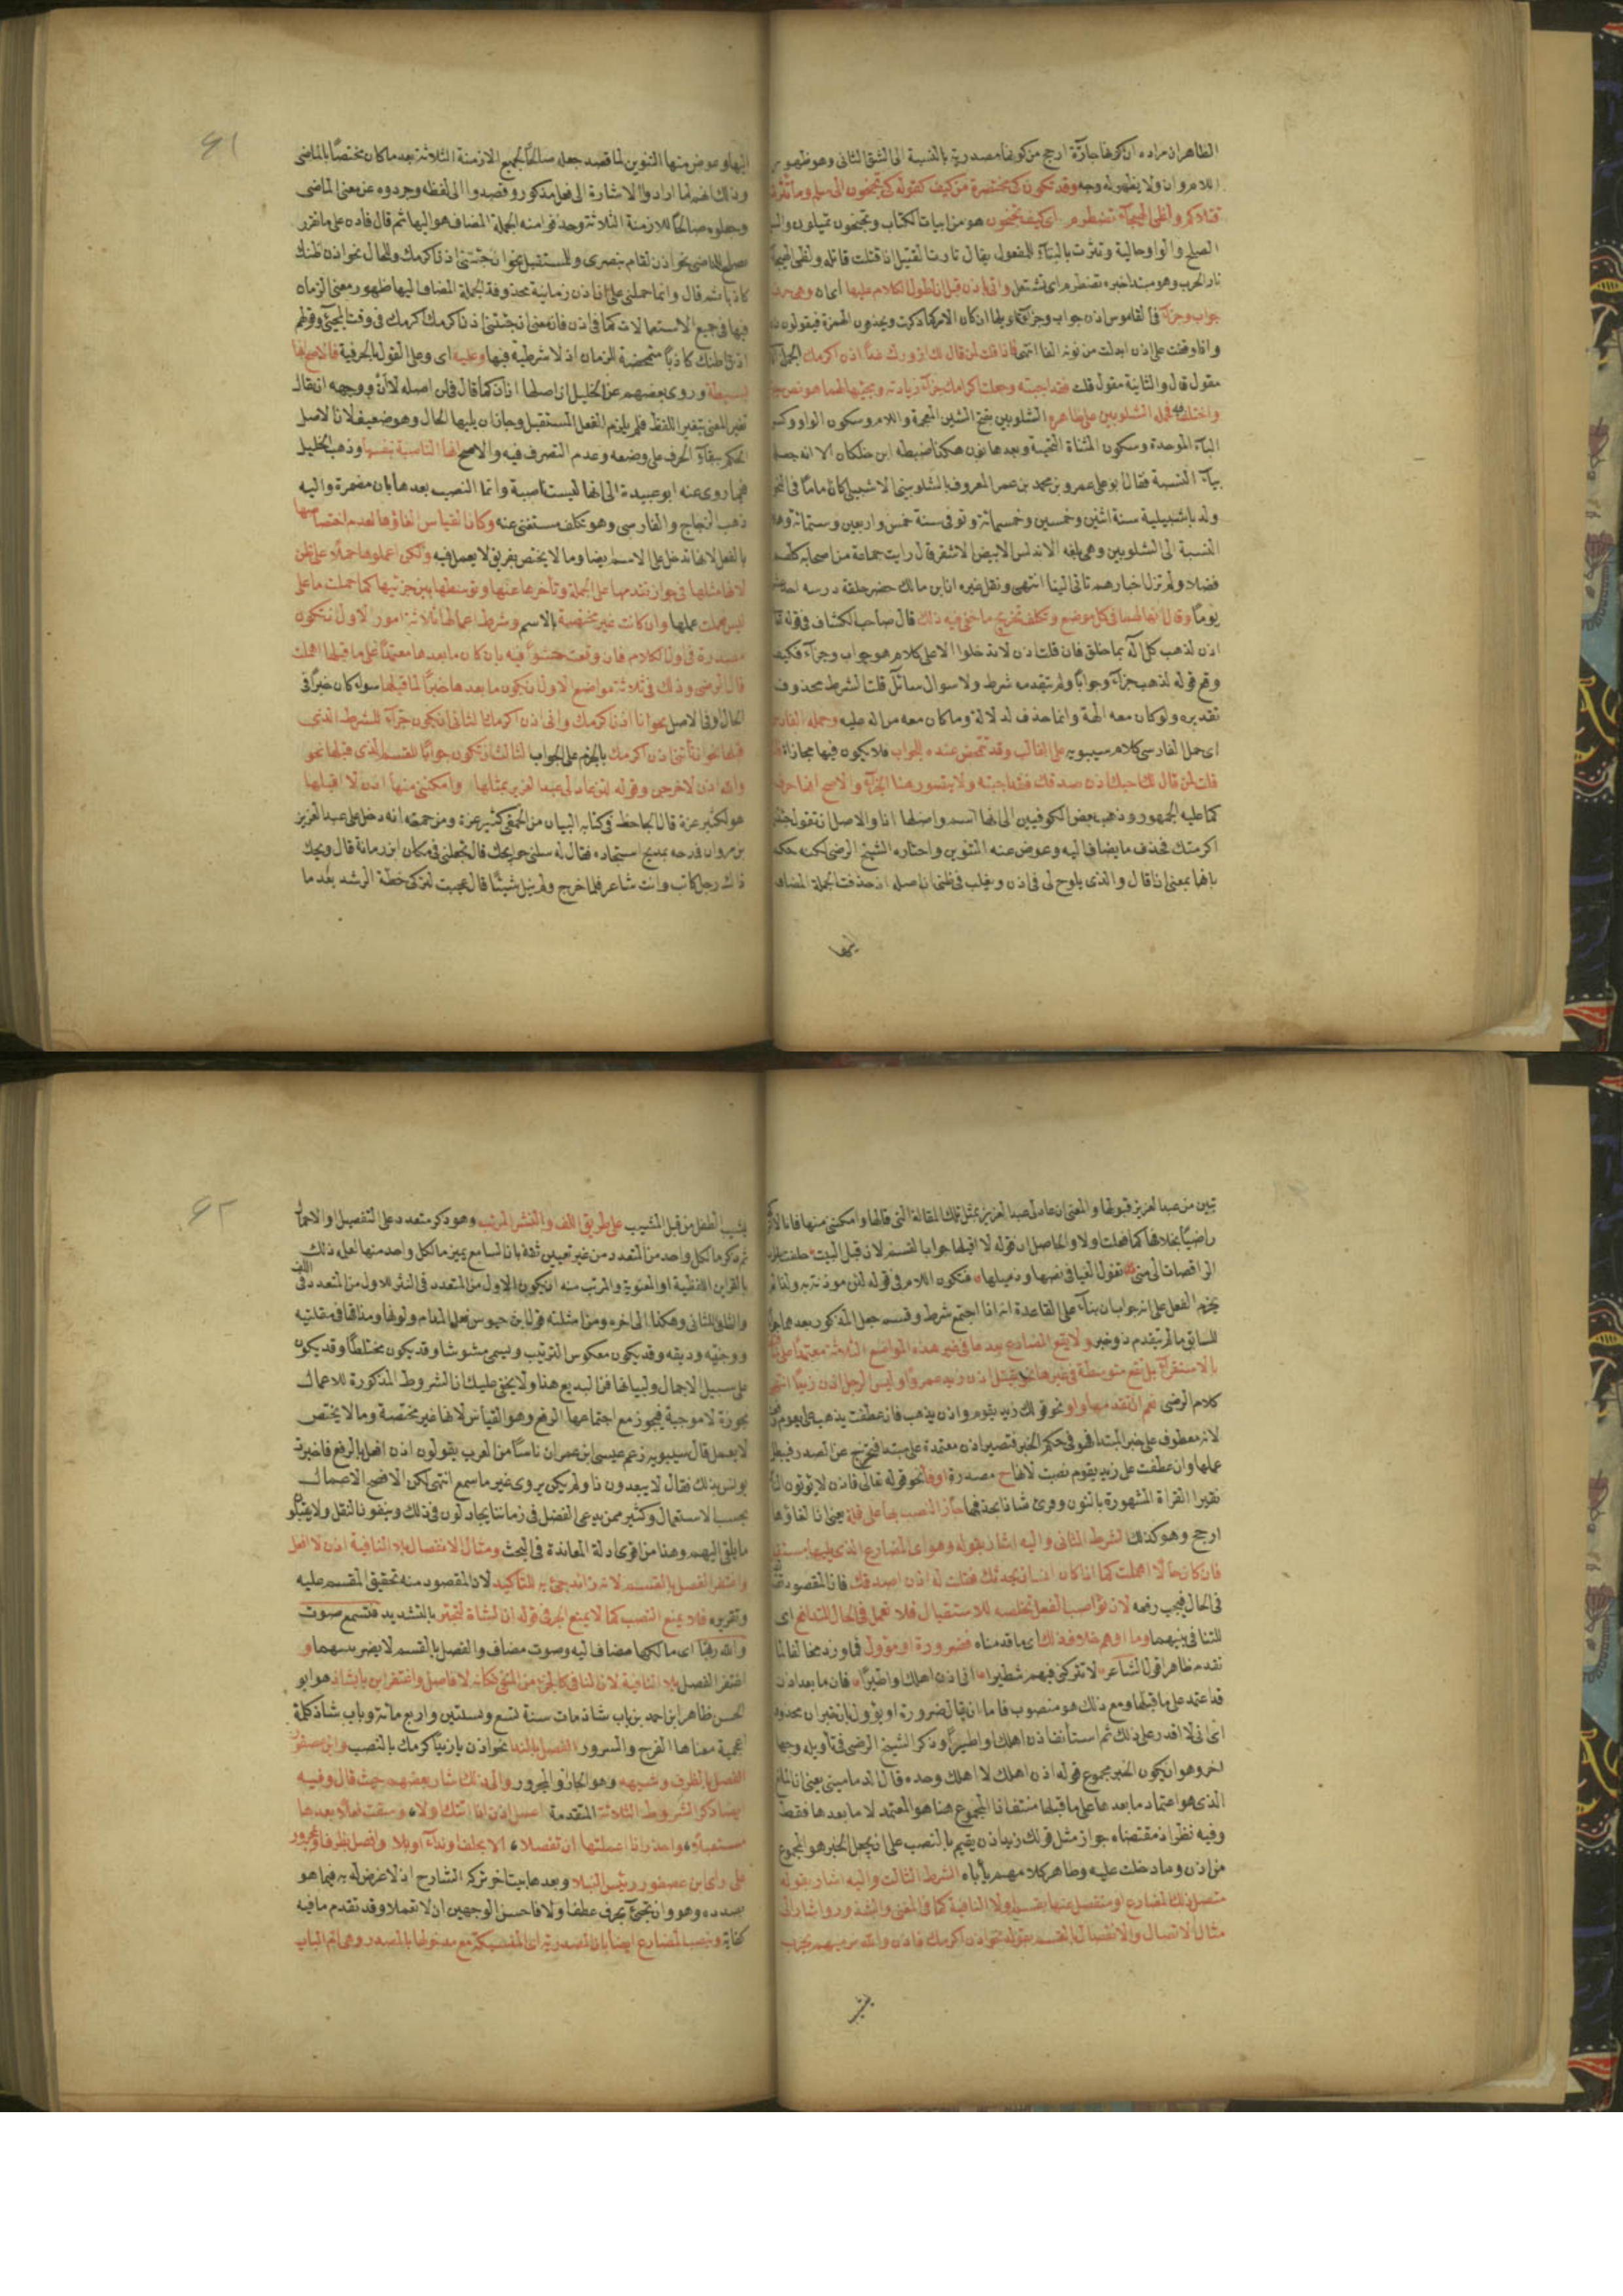 الظاهر ان مراده ان كونها جارّة ارجح من كونها مصدرية بالنسبة الى الشق الثانى وهو ظهور
اللام وان ولا يظهر له وجه وقد تكون كى مختصرة من كيف كقوله كى تجنحون الى سلم وما ثئرت
قتلاكم ولظى الهيجآء تضطرم اى كيف تجنحون هو من ابيات الكتاب وتجنحون تميلون والسلم
الصلح والواو حالية وثئرت بالبنآء للمفعول يقال ثارت القتيل اذا قتلت قاتله ولظى الهيجآ
نار الحرب وهو مبتدا خبره تضطرم اى تشتعل واتى باذن قبل ان لطول الكلام عليها
جواب وجزآء فى القاموس اذن جواب وجزآء تاويلها ان كان الامر كما ذكرت ويحذفون الهمزة فيقولون ذن
واذا وقفت على اذن ابدلت من نونه الفا انتهى فاذا قلت لمن قال لك ازورك غدًا اذن اكرمك الجملة
مقول قال والثانية مقول قلت فقد اجبته وجعلت اكرامك جزآء زيارته ومجيئها لهما هو نص
واختلف فيه فحمله الشلوبين على ظاهره الشلوبين بفتح الشين المعجمة واللام وسكون الواو وكسر
البآء الموحدة وسكون المثناة التحتية وبعدها نون هكذا ضبطه ابن خلكان الا انه
بيآء النسبة فقال ابو على عمرو بن محمد بن عمر المعروف بالشلوبينى الاشبيلى كان اماما فى النحو
ولد باشبيلية سنة اثنين وخمسين وخمسمائة وتوفى سنة خمس واربعين وستمائة وهذه
النسبة الى الشلوبين وهى بلغة الاندلس الابيض الاشقر قال رايت جماعة من اصحابه كلهم
فضلا ولم تزل اخبارهم تاتى الينا انتهى ونقل غيره ان ابن مالك حضر حلقة درسه
يومًا وقال انها لهما فى كل موضع وتكلف تخريج ما خفى فيه ذلك قال صاحب الكشاف فى قوله
اذن لذهب كل اله بما خلق فان قلت اذن لا تدخل الا على كلام هو جواب وجزآء فكيف
وقع قوله لذهب جزآء وجوابا ولم يتقدمه شرط ولا سوال سائل قلت الشرط محذوف
تقديره ولو كان معه الهة وانما حذف لدلالة وما كان معه من اله عليه وحمله الفارسى
اى حمل الفارسى كلام سيبويه على الغالب وقد تتمحض عنده للجواب فلا يكون فيها مجازاة
قلت لمن قال لك احبك اذن صدقك فقد اجبته ولا يتصور هنا الجزآء والاصح انها حرف
كما عليه الجمهور وذهب بعض الكوفيين الى انها اسم واصلها اذا والاصل ان تقول جئتنى
اكرمتك فحذف ما يضاف اليه وعوض عنه التنوين واختاره الشيخ الرضى لكنه حكم
بانها بمعنى اذا قال والذى يلوح لى فى اذن ويغلب فى ظنى ان اصله اذ حذفت الجملة المضاف
اليها
٤١
اليها وعوض منها التنوين لما قصد جعله صالحًا لجميع الازمنة الثلاثة بعد ما كان مختصًا بالماضى
وذلك انهم لما ارادوا الاشارة الى فعل مذكور وقصدوا الى لفظه وجردوه عن معنى الماضى
وجعلوه صالحًا للازمنة الثلاثة وحذفوا منه الجملة المضاف هو اليها ثم قال فاذه على ما تقرر
تصلح للماضى نحو اذن لقام بنصرى وللمستقبل نحو ان جئتنى اذن اكرمك وللحال نحو اذن ظنك
كاذبا ثم قال وانما حملنى على ان اذن زمانية محذوفة الجملة المضاف اليها ظهور معنى الزمان
فيها فى جميع الاستعمالات كما فى اذن فان معنى ان جئتنى اذن اكرمك اكرمك فى وقت المجئ وقولهم
اذن اظنك كاذبًا متمحضة للزمان اذ لا شرطية فيها وعليه اى وعلى القول بالحرفية فالاصح انها
بسيطة وروى بعضهم عن الخليل ان اصلها اذ ان كما قال فى لن اصله لا ان ووجهه ان يقال
تغير المعنى بتغير اللفظ فلم يلزم الفعل المستقبل وجاز ان يليها الحال وهو ضعيف لان الاصل
الحكم ببقآء الحرف على وضعه وعدم التصرف فيه والاصح انها الناصبة بنفسها وذهب الخليل
فيما روى عنه ابو عبيدة الى انها ليست ناصبة وانما النصب بعدها بان مضمرة واليه
ذهب الزجاج والفارسى وهو تكلف مستغنى عنه وكان القياس الغاؤها لعدم اختصاصها
بالفعل لانها تدخل على الاسم ايضا وما لا يختص بفريق لا يعمل فيه ولكن اعملوها حملا على ظن
لانها مثلها فى جواز تقدمها على الجملة وتأخرها عنها وتوسطها بين جزئيها كما حملت ما على
ليس فعملت عملها وان كانت غير مختصة بالاسم وشرط اعمالها ثلاثة امور الاول ان تكون
مصدرة فى اول الكلام فان وقعت حشوًا فيه بان كان ما بعدها معتمدًا على ما قبلها اهملت
قال الرضى وذلك فى ثلاثة مواضع الاول ان يكون ما بعدها خبرًا لما قبلها سواء كان خبرًا فى
الحال او فى الاصل نحو انا اذن اكرمك وانى اذن اكرمك الثانى ان يكون جزآء للشرط الذى
قبلها نحو ان تأتنى اذن اكرمك بالجزم على الجواب الثالث ان تكون جوابًا للقسم الذى قبلها نحو
والله اذن لاخرجن وقوله لئن عاد لى عبد العزيز بمثلها وامكننى منها اذن لا اقيلها
هو لكثير عزة قال الجاحظ فى كتابه البيان من الحمقى كثير عزة ومن حمقه انه دخل على عبد العزيز
بن مروان فمدحه بمديح استجاده فقال له سلنى حوايجك قال تجعلنى فى مكان ابن رمانة قال ويحك
ذاك رجل كاتب وانت شاعر فلما خرج ولم ينل شيئًا قال عجبت لتركى خطة الرشد بعد ما
تبين من عبد العزيز قبولها والمعنى ان عاد لى عبد العزيز بمثل تلك المقالة التى قالها وامكننى منها فانا لا
راضيًا بخلافها كما فعلت اولا والحاصل ان قوله لا اقيلها جوابا لقسم لان قبل البيت حلفت برب
الراقصات الى منى تغول الفيافى نصها وذميلها فتكون اللام فى قوله لئن موذنة به ولذا لم
يجزم الفعل على انه جواب ان بنآء على القاعدة انه اذا اجتمع شرط وقسم جعل المذكور بعدهما جوابا
للسابق ما لم يتقدم ذو خبر ولا يقع المضارع بعدها فى غير هذه المواضع الثلاثة معتمدًا على ما
بالاستقرآء بل تقع متوسطة فى غيرها نحو يقتل اذن زيد عمروًا وليس الرجل اذن زيدًا انتهى
كلام الرضى نعم ان تقدمها واو نحو قولك زيد يقوم واذن يذهب فان عطفت يذهب على يقوم
لانه معطوف على خبر المبتدا فهو فى حكم الخبر فتصير اذن معتمدة على مبتدا فتخرج عن الصدر فيبطل
عملها وان عطفت على زيد يقوم نصبت لانها ح مصدرة او فا نحو قوله تعالى فاذن لا يؤتون الناس
نقيرا القراة المشهورة بالنون وقرئ شاذا بحذفها جاز النصب بها على قلة يعنى ان الغاؤها
ارجح وهو كذلك الشرط الثانى واليه اشار بقوله وهو اى المضارع الذى يليها مستقبل
فان كان حالا اهملت كما اذا كان انسان يحدثك فقلت له اذن اصدقك فان المقصود
فى الحال فيجب رفعه لان نواصب الفعل تخلصه للاستقبال فلا تعمل فى الحال للتدافع اى
للتنافى بينهما وما اوهم خلاف ذلك اى ما قدمناه فضرورة او مؤول فما ورد مخالفا لما
تقدم ظاهرا قول الشاعر لا تتركنى فيهم شطيرا انى اذن اهلك او اطيرا فان ما بعد اذن
قد اعتمد على ما قبلها ومع ذلك هو منصوب فاما ان يقال ضرورة او يؤول بان خبر ان محذوف
اى انى لا اقدر على ذلك ثم استأنف اذن اهلك او اطيرًا وذكر الشيخ الرضى فى تأويله وجها
اخر وهو ان يكون الخبر مجموع قوله اذن اهلك لا اهلك وحده قال الدمامينى يعنى ان المانع
الذى هو اعتماد ما بعدها على ما قبلها منتف اذ المجموع هنا هو المعتمد لا ما بعدها فقط
وفيه نظر اذ مقتضاه جواز مثل قولك زيد اذن يقيم بالنصب على ان يجعل الخبر هو المجموع
من اذن وما دخلت عليه وظاهر كلامهم يأباه الشرط الثالث واليه اشار بقوله
متصل ذلك المضارع او منفصل عنها بقسم او لا النافية كما فى المغنى والشذور واشار الى
مثال الاتصال والانفصال بالقسم بقوله نحو اذن اكرمك واذن والله نرميهم بحرب
٤٢
يشيب الطفل من قبل المشيب على طريق اللف والنشر المرتب وهو ذكر متعدد على التفصيل او الاجمال
ثم ذكر ما لكل واحد من المتعدد من غير تعيين ثقة بان السامع يميز ما لكل واحد منها لعل ذلك
بالقراين اللفظية او المعنوية والمرتب منه ان يكون الاول من المتعدد فى النشر للاول من المتعدد فى اللف
والثانى للثانى وهكذا الى اخره ومن امثلته قول ابن حيوس فعل المدام ولونها ومذاقها فى مقلتيه
ووجنتيه وريقه وقد يكون معكوس الترتيب ويسمى مشوشا وقد يكون مختلطًا وقد يكون
على سبيل الاجمال ولبيانها فن البديع هنا ولا يخفى عليك ان الشروط المذكورة للاعمال
مجوزة لا موجبة فيجوز مع اجتماعها الرفع وهو القياس لانها غير مختصة وما لا يختص
لا يعمل قال سيبويه زعم عيسى ابن عمر ان ناسًا من العرب يقولون اذن افعل بالرفع فاخبرت
يونس بذلك فقال لا يبعدون ذا ولم يكن يروى غير ما سمع انتهى لكن الافصح الاعمال
بحسب الاستعمال وكثير ممن يدعى الفضل فى زماننا يجادلون فى ذلك وينفون النقل ولا يقبلون
ما يلقى اليهم وهنا من اقوى ادلة المعاندة فى البحث ومثال الانفصال بلا النافية اذن لا افعل
واغتفر الفصل بالقسم لانه زائد جئ به للتأكيد لان المقصود منه تحقيق المقسم عليه
وتقريره فلا يمنع النصب كما لا يمنع الجر فى قوله ان الشاة لتجتر بالتشديد فتسمع صوت
والله ربها اى مالكها مضاف اليه وصوت مضاف والفصل بالقسم لا يضر بينهما و
اغتفر الفصل بلا النافية لان النافى كالجزء من المنفى فكانه لا فاصل واغتفر ابن بابشاذ هو ابو
الحسن ظاهر ابن احمد بن باب شاذ مات سنة تسع وستين واربع مائة وباب شاذ كلمة
اعجمية معناها الفرح والسرور الفصل بالندا نحو اذن يا زيد اكرمك بالنصب وابن عصفور
الفصل بالظرف وشبهه وهو الجار والمجرور والى ذلك اشار بعضهم حيث قال وفيه
ايضا ذكر الشروط الثلاثة المتقدمة اعمل اذن اذا اتتك اولا وسقت فعلا بعدها
مستقبلا واحذر اذا اعملتها ان تفصلا الا بحلف او نداء او بلا وافصل بظرف او بمجرور
على راى ابن عصفور رئيس النبلا وبعدها بيتا خر تركه الشارح اذ لا غرض له به فيما هو
بصدده وهو وان تجئ بحرف عطف اولا فاحسن الوجهين ان لا تعملا وقد تقدم ما فيه
كفاية وينصب المضارع ايضا بان المصدرية اى المنسبكة مع مدخولها بالمصدر وهى ام الباب